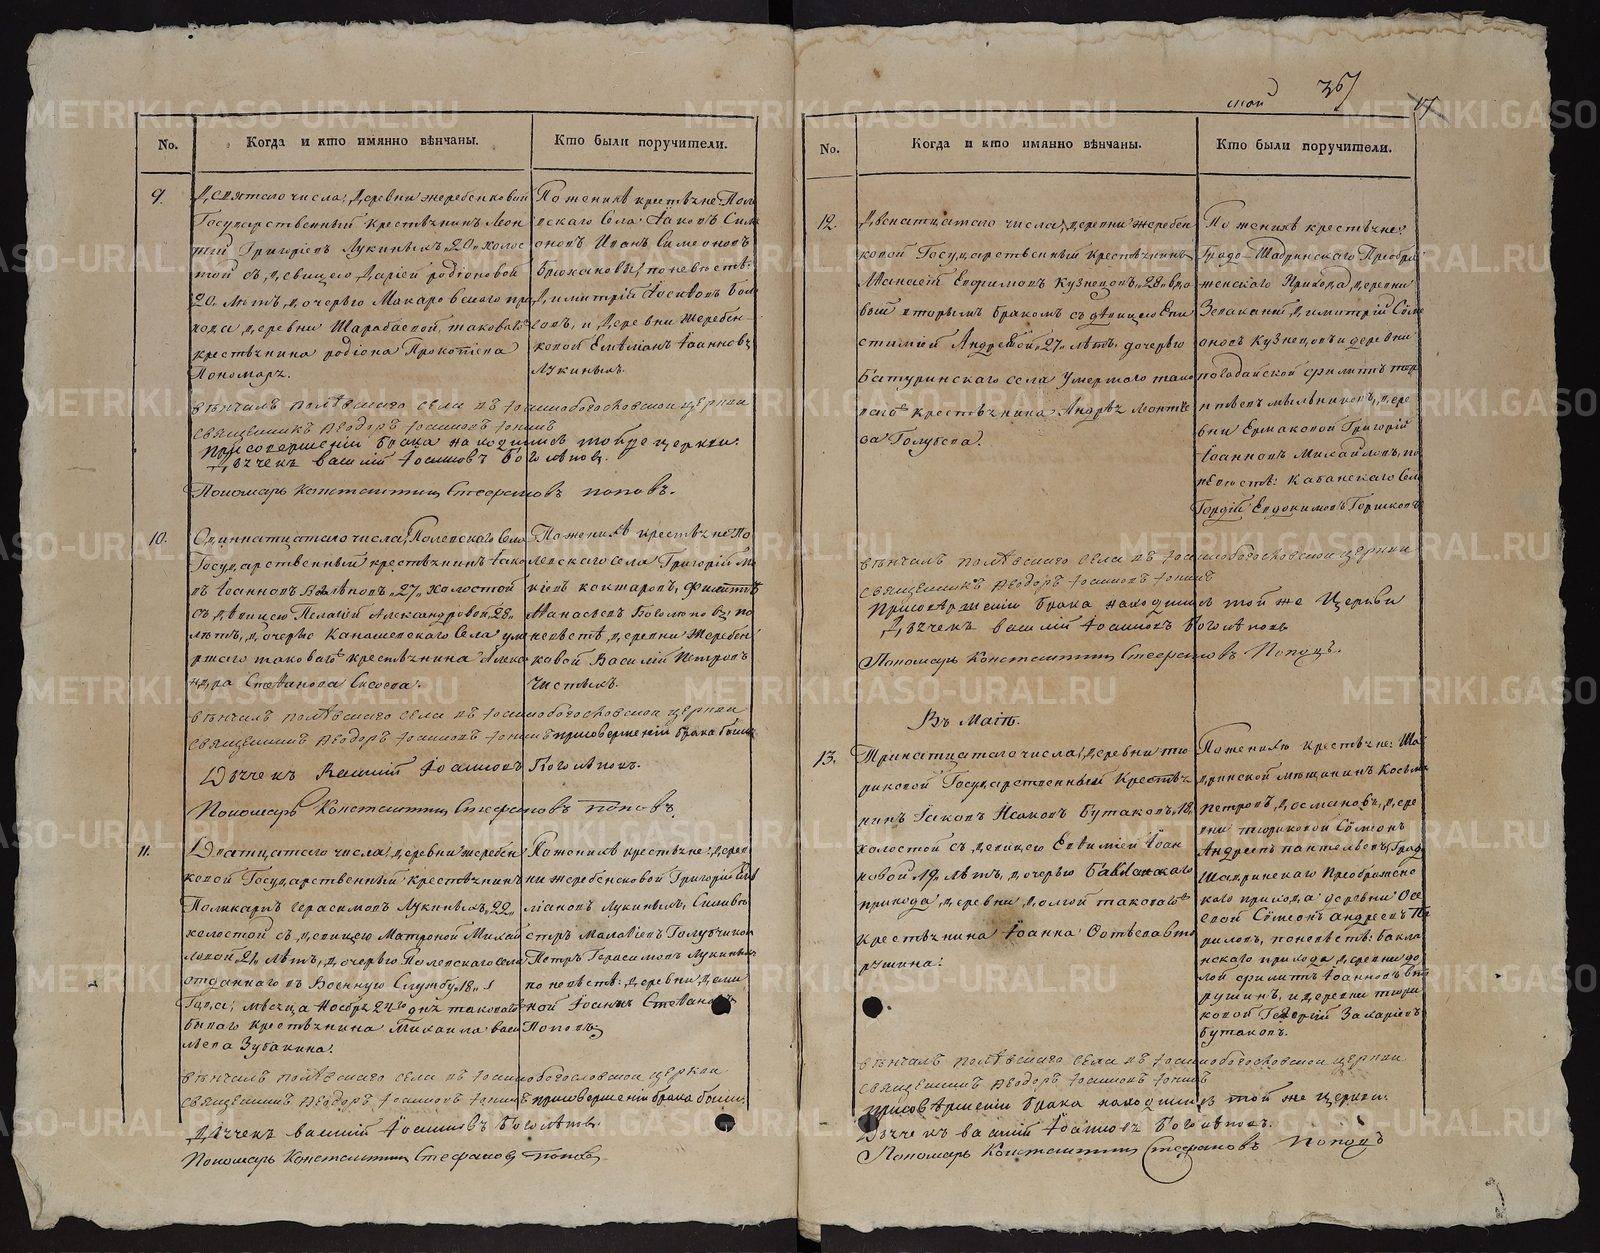 No.
Когда и кто имянно вѣнчаны.
Кто были поручители.
9.
Девятаго числа, Деревни Жеребенковой
Государственный крестьянинъ Леон
тій Григоріевъ Лукиныхъ 20 холос
той съ девицею Даріей родіоновой
20. лѣтъ, дочерью Макаровскаго при
хода деревни Шарабаевой таковаго
крестьянина родіона Прокопіева
Пономаръ.
По женихѣ крестьяне Поле
вскаго Села Іаковъ Сим
оновъ Иванъ Симеоновъ
по невѣстѣ:
Димитрій
и деревни Жеребен
ковой Емеліанъ Іаанновъ
Лукиныхъ.
вѣнчалъ полѣвскаго села въ Іоаннобогословской церкви
священникъ Ѳеодоръ Іоанновъ
При совершеніи брака находились той же церкви:
Дьячекъ Василій Іоанновъ Боголѣповъ.
Пономарь Константинъ Стефановъ поповъ.
10.
Одиннатцатаго числа, Полевскаго Села
Государственный крестьянинъ Іако
въ Іоанновъ 27, холостой
съ девицею Пелагіей Александровой 28.
лѣтъ, дочерью Села ум
ршаго таковаго крестьянина Алекса
ндра Стефанова Сысоева.
По женихѣ крестьяне По
левскаго села Григорій
Филиппъ
Аѳанасьевъ по
невѣстѣ деревни Жеребен
ковой Василій Петровъ
Чистыхъ.
вѣнчалъ полѣвскаго села въ Іоаннобогословской церкви
священникъ Ѳеодоръ Іоанновъ при совершеніи брака были:
Дьячекъ Василій Іоанновъ Боголѣповъ.
Пономарь Константинъ Стефановъ поповъ.
11.
Дватцатаго числа, деревни Жеребен
ковой Государственный Крестьянинъ
Поликарпъ Герасимовъ Лукиныхъ, 22,
холостой съ девицею Матроной Михай
ловой, 21, лѣтъ, дочерью Полевскаго села
отданнаго въ Военную Службу, 18,
Года, мѣсяца Ноября 24го дня таковаго
бываго крестьянина Михаила Васи
льева Зубакина.
По женихѣ крестьяне: дерев
ни Жеребенковой Григорій Еме
ліановъ Лукиныхъ, Сильве
стръ
Петръ Герасимовъ Лукиныхъ
по невѣстѣ: деревни
Іоаннъ Стефановъ
Поповъ.
вѣнчалъ полѣвскаго села въ Іоаннобогословской церкви
священникъ Ѳеодоръ Іоанновъ при совершеніи брака были:
Дьячекъ Василій Іоанновъ Боголѣповъ.
Пономарь Константинъ Стефановъ поповъ
май
367
17
No.
Когда и кто имянно вѣнчаны.
Кто были поручители.
12.
Двенатцатаго числа, деревни Жеребен
ковой Государственный крестьянинъ
Евфимовъ Кузнецовъ, 28, вдо
вый вторымъ бракомъ съ девицею Епи
стиміей Андреевой, 27, лѣтъ, дочерью
Батуринскаго села Умершаго тако
ваго крестьянина Андрея Леонтье
ва Голубева.
По женихѣ крестьяне
Градо-Шадринскаго Преобра
женскаго Прихода, деревни
Димитрій Симе
оновъ Кузнецовъ и деревни
Филиппъ
дере
вни Ермаковой Григорій
Іоанновъ Михайловъ, по
невѣстѣ: Кабанскаго Села
Гордій Евдокимовъ Горшковъ
вѣнчалъ полѣвскаго села въ Іоаннобогословской церкви
священникъ Ѳеодоръ Іоанновъ
При совѣршеніи брака находились той же Церкви
Дьячекъ Василій Іоанновъ Боголѣповъ
Пономарь Константинъ Стефановъ Поповъ.
Въ Маіѣ.
13.
Тринатцатаго числа, деревни тю
риковой Государственный Крестья
нинъ Іаковъ Исаковъ Бутаковъ, 18,
холостой съ девицею Евѳиміей Іоан
новой, 19, лѣтъ, дочерью Бакланскаго
прихода, деревни Долгой таковаго
Крестьянина Іоанна
ршина.
По женихѣ крестьяне: Ша
дринской мѣщанинъ Косьма
Петровъ, дере
вни тюриковой Сѵмеонъ
Андреевъ Пантелеевъ, Градо
Шадринскаго Преображенс
каго прихода деревни
Сѵмеонъ Андреевъ
по невѣстѣ: бакла
нскаго прихода деревни до
лгой филиппъ Іоанновъ
и деревни тюри
ковой Георгій Захаріевъ
Бутаковъ.
вѣнчалъ полѣвскаго села въ Іоаннобогословской церкви
священникъ Ѳеодоръ Іоанновъ
При совѣршеніи брака находились той же церкви.
Дьячекъ василій Іоанновъ Боголѣповъ.
Пономарь Константинъ Стефановъ Поповъ
METRIKI.GASO-URAL.RU